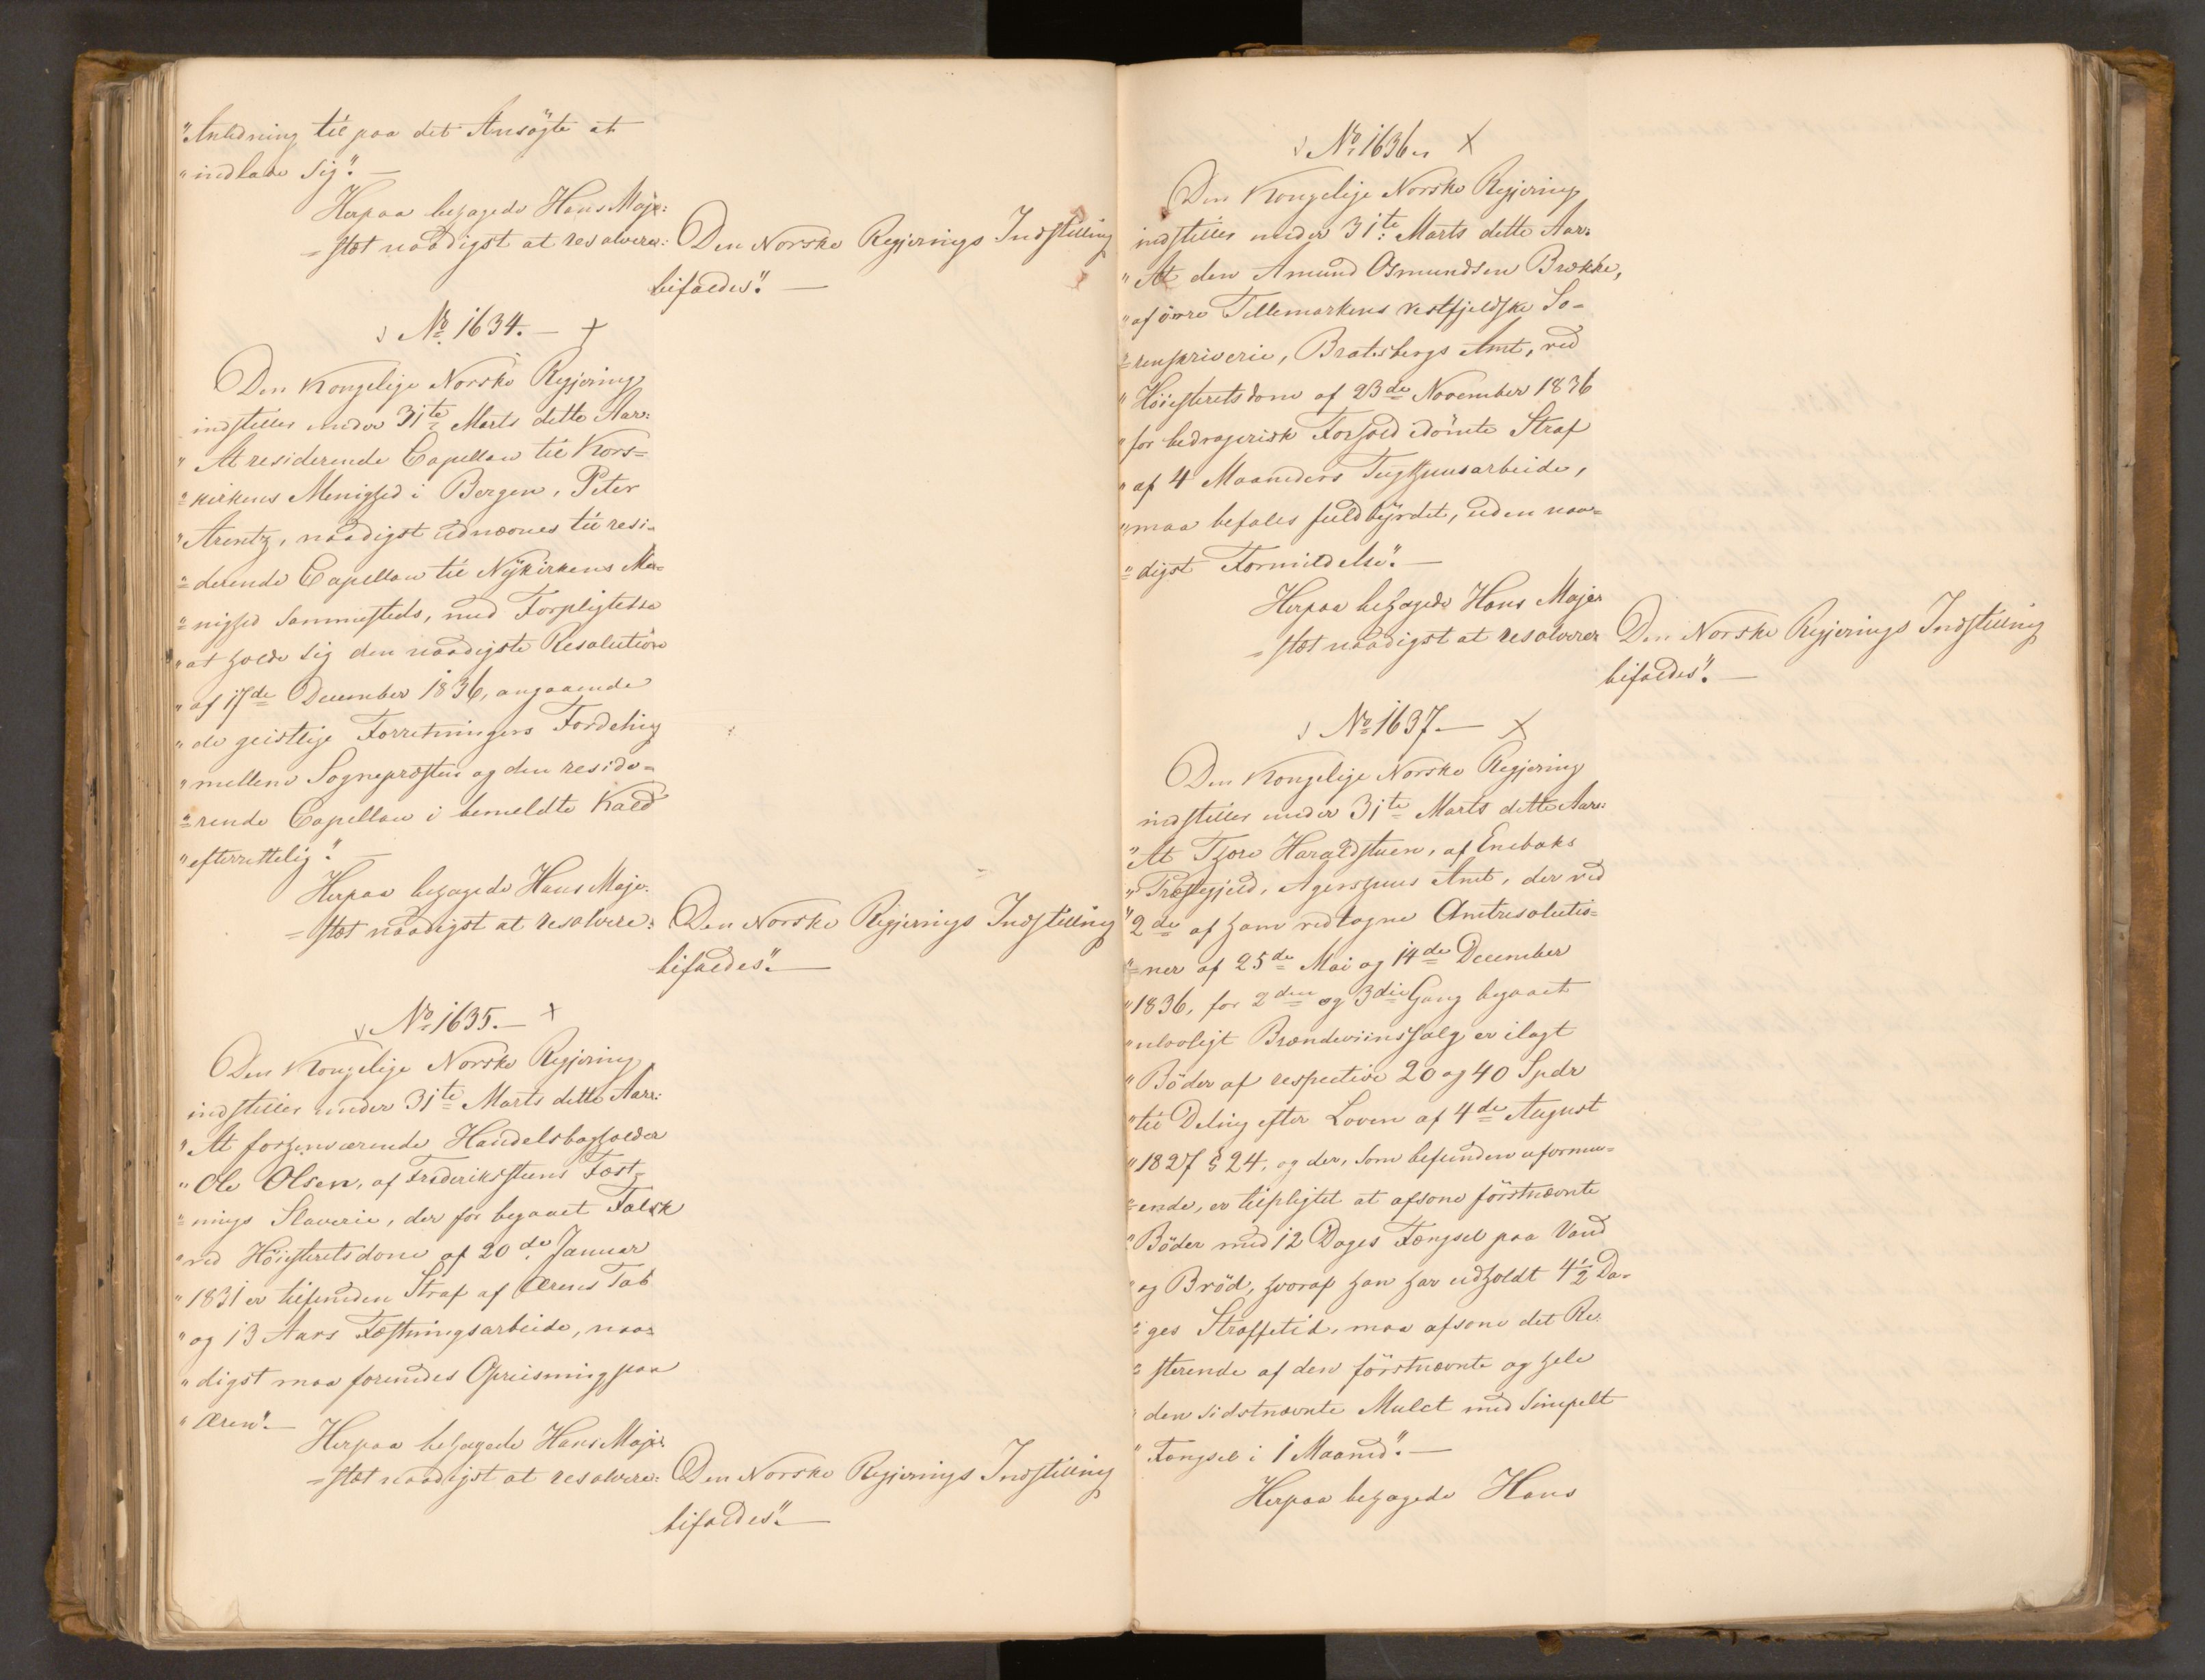 "Anledning til paa det Ansøgte at
"indlade sig". —
Herpaa behagede Hans Maje:
=stæt naadigst at resolvere: Den Norske Regjerings Indstilling
bifaldes". —
No 1634. —
Den Kongelige Norske Regjering
indstiller under 31te Marts dette Aar:
"At residerende Capellan til Kors=
"=kirkens Menighed i Bergen, Peter
"Arentz, naadigst udnævnes til resi=
"=derende Capellan til Nykirkens Me=
"=nighed sammesteds, med Forpligtelse
"at holde sig den naadigste Resolution
"af 17de December 1836, angaaende
"de geistlige Forretningers Fordeling
"mellem Sognepræsten og den reside=
"=rende Capellan i bemeldte Kald
"efterrettelig". —
Herpaa behagede Hans Maje:
=stæt naadigst at resolvere: Den Norske Regjerings Indstilling
bifaldes". —
No 1635. —
Den Kongelige Norske Regjering
indstiller under 31te Marts dette Aar:
"At forhenværende Handelsbogholder
"Ole Olsen, af Frederikstens Fæst=
"=nings Slaverie, der for begaaet Falsk
"ved Høiesteretsdom af 20de Januar
"1831 er tilfunden Straf af Ærens Tab
"og 13 Aars Fæstningsarbeide, naa=
"digst maa forundes Opreisning paa
"Æren". —
Herpaa behagede Hans Maje:
=stæt naadigst at resolvere: Den Norske Regjerings Indstilling
bifaldes". —
No 1636.
Den Kongelige Norske Regjering
indstiller under 31te Marts dette Aar:
"At den Amund Osmundsen Brække,
"af øvre Tellemarkens vestfjeldske So=
"=renskriverie, Bratsbergs Amt, ved
"Høiesteretsdom af 23de November 1836
"for bedragerisk Forhold idømte Straf
"af 4 Maaneders Tugthuusarbeide,
"maa befales fuldbyrdet, uden naa=
"=digst Formildelse". —
Herpaa behagede Hans Maje:
=stæt naadigst at resolvere: Den Norske Regjerings Indstilling
bifaldes". —
No 1637 —
Den Kongelige Norske Regjering
indstiller under 31te Marts dette Aar:
"At Thore Haraldstuen, af Enebaks
"Præstegjeld, Agershuus Amt, der ved
"2de af ham vedtagne Amtresolutio=
"=ner af 25de Mai og 14de December
"1836, for 2den og 3die Gang begaaet
"ulovligt Brændeviinssalg er ilagt
"Bøder af respective 20 og 40 Spdr
"til Deling efter Loven af 4de August
"1827 § 24, og der, som befunden uformu=
"=ende, er tilpligtet at afsone førstnævnte
"Bøder med 12 Dages Fængsel paa Vand
"og Brød, hvoraf han har udholdt 4½ Da=
"=ges Straffetid, maa afsone det Re=
"=sterende af den førstnævnte og hele
"den sidstnævnte Mulct med simpelt
"Fængsel i 1 Maaned". —
Herpaa behagede Hans